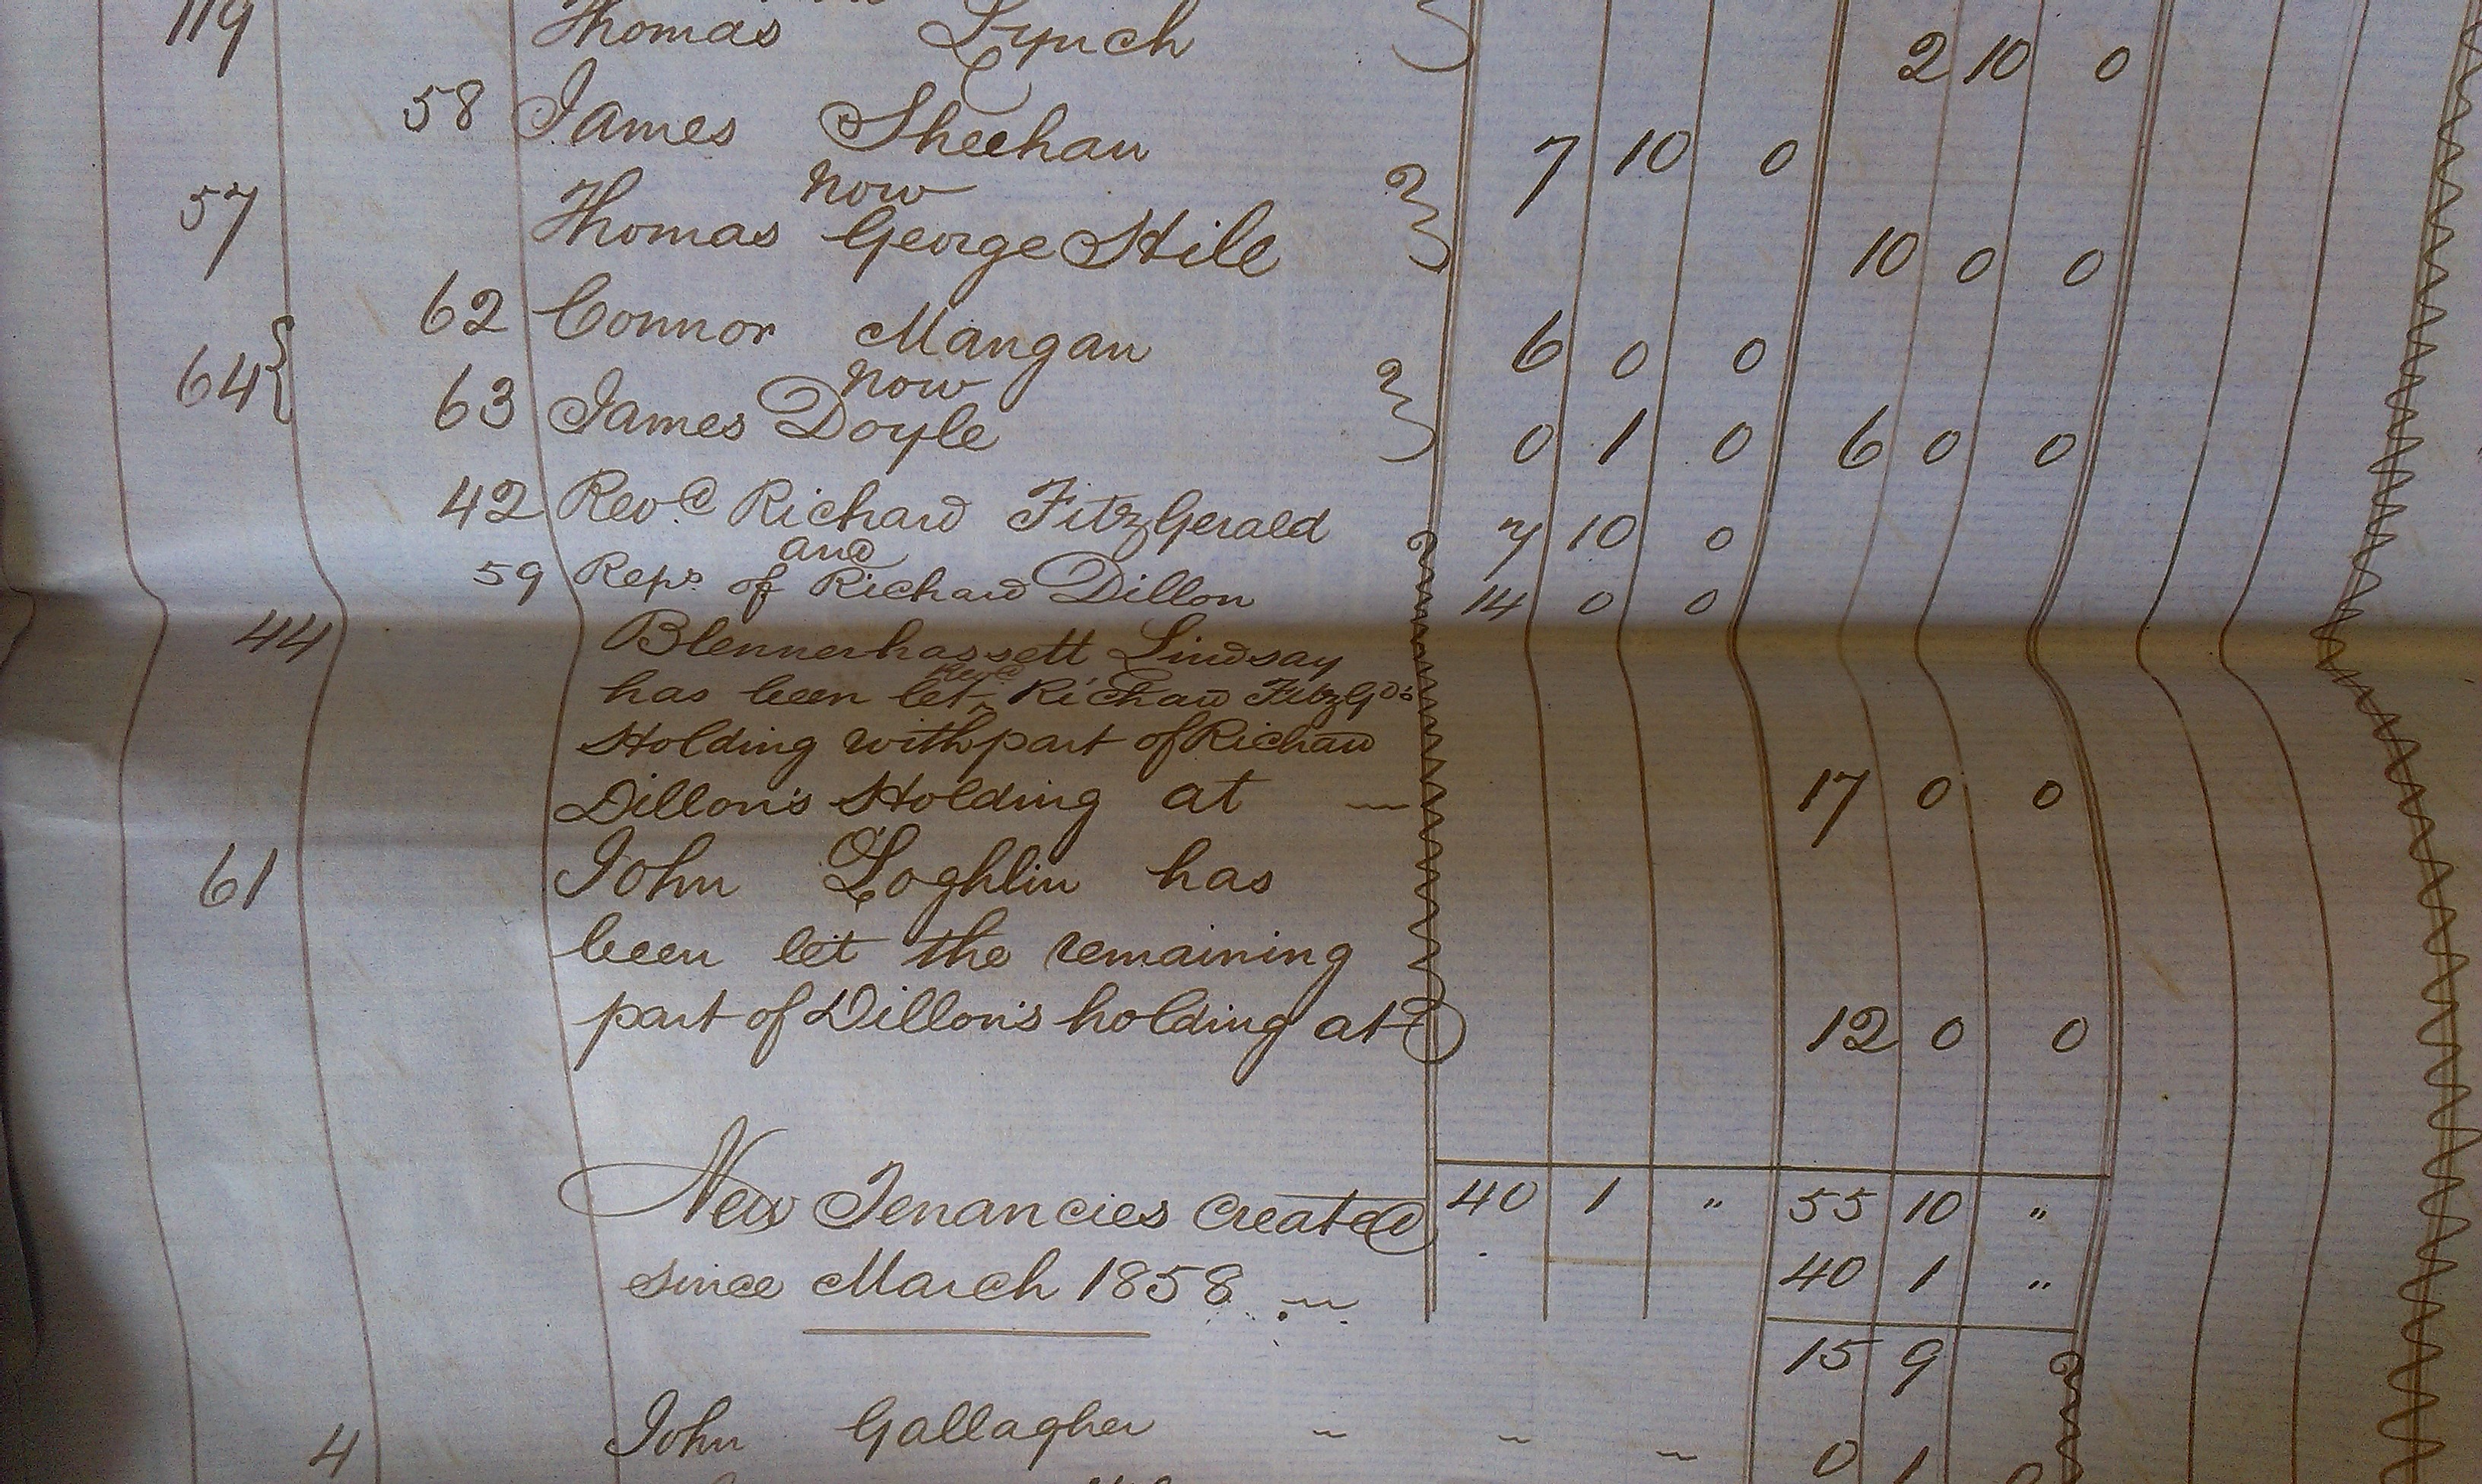 119 Thomas Lynch 2 10 0
58 James Sheehan 7 10 0
now
57 Thomas George Hill 10 0 0
62 Connor Mangan 6 0 0
64 { now
63 James Doyle 0 1 0 6 0 0
42 Revd. Richard FitzGerald 7 10 0
and
59 Reps. of Richard Dillon 14 0 0
44 Blennerhassett Lindsay
has been let Revd Richard FitzGds
Holding with part of Richard
Dillon's Holding at 17 0 0
61 John Loghlin has
been let the remaining
part of Dillon's holding at 12 0 0
New Tenancies created 40 1 " 55 10 "
since March 1858 40 1 "
15 9
4 John Gallagher 0 1